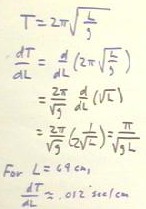 T = 2π√(L/g)
dT/dL = d/dL (2π√(L/g))
= 2π/√g d/dL (√L)
= 2π/√g (1/(2√L)) = π/√(gL)
For L = 69 cm,
dT/dL ≈ .012 sec/cm